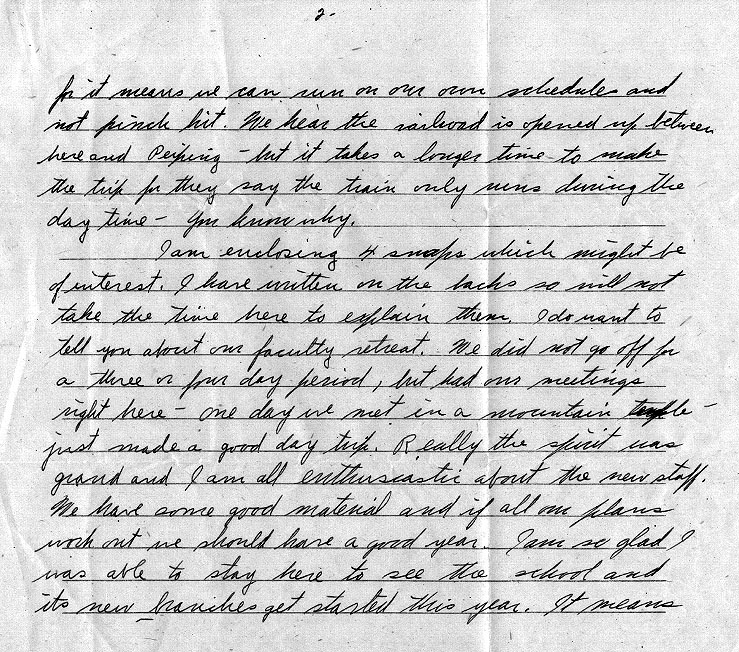 2.
for it means we can run on our own schedules and
not pinch hit. We hear the railroad is opened up between
here and Peiping - but it takes a longer time to make
the trip for they say the train only runs during the
day time - you know why.
I am enclosing 4 snaps which might be
of interest. I have written on the backs so will not
take the time here to explain them. I do want to
tell you about our faculty retreat. We did not go off for
a three or four day period, but had our meetings
right here - one day we met in a mountain temple -
just made a good day trip. Really the spirit was
grand and I am all enthusiastic about the new staff.
We have some good material and if all our plans
work out we should have a good year. I am so glad I
was able to stay here to see the school and
its new branches get started this year. It means